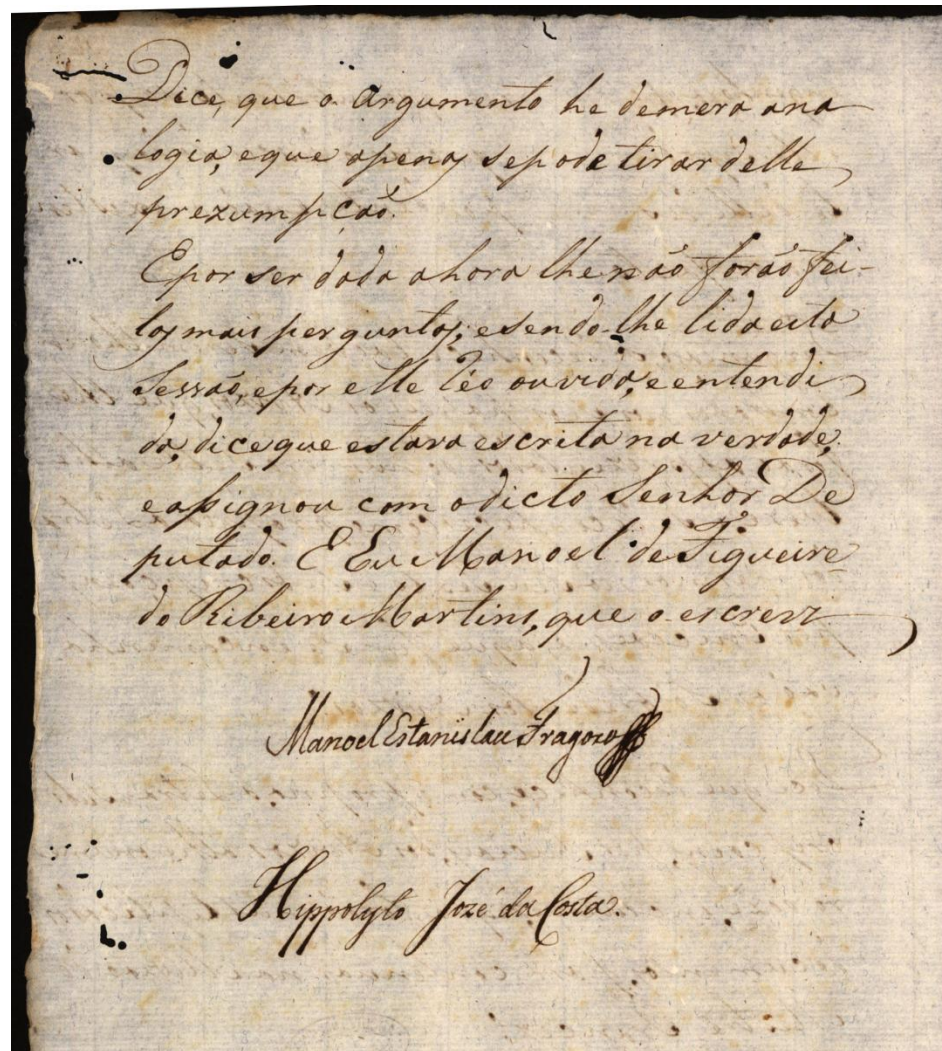 Dice, que o argumento he demera ana
logia, eque apenas sepode tirar delle
prezumpção.
Epor ser dada ahora lhe não forão fei-
tos mais perguntas; esendo-lhe lida esta
Sessão, epor elle Réo ouvida, e entendi
da, dice que estava escrita na verdade,
eassignou com odicto Senhor De
putado. E Eu Manoel de Figueire
do Ribeiro e Martins, que o escrevi
Manoel Estanislau Fragozo
Hippolyto Jozé da Costa.